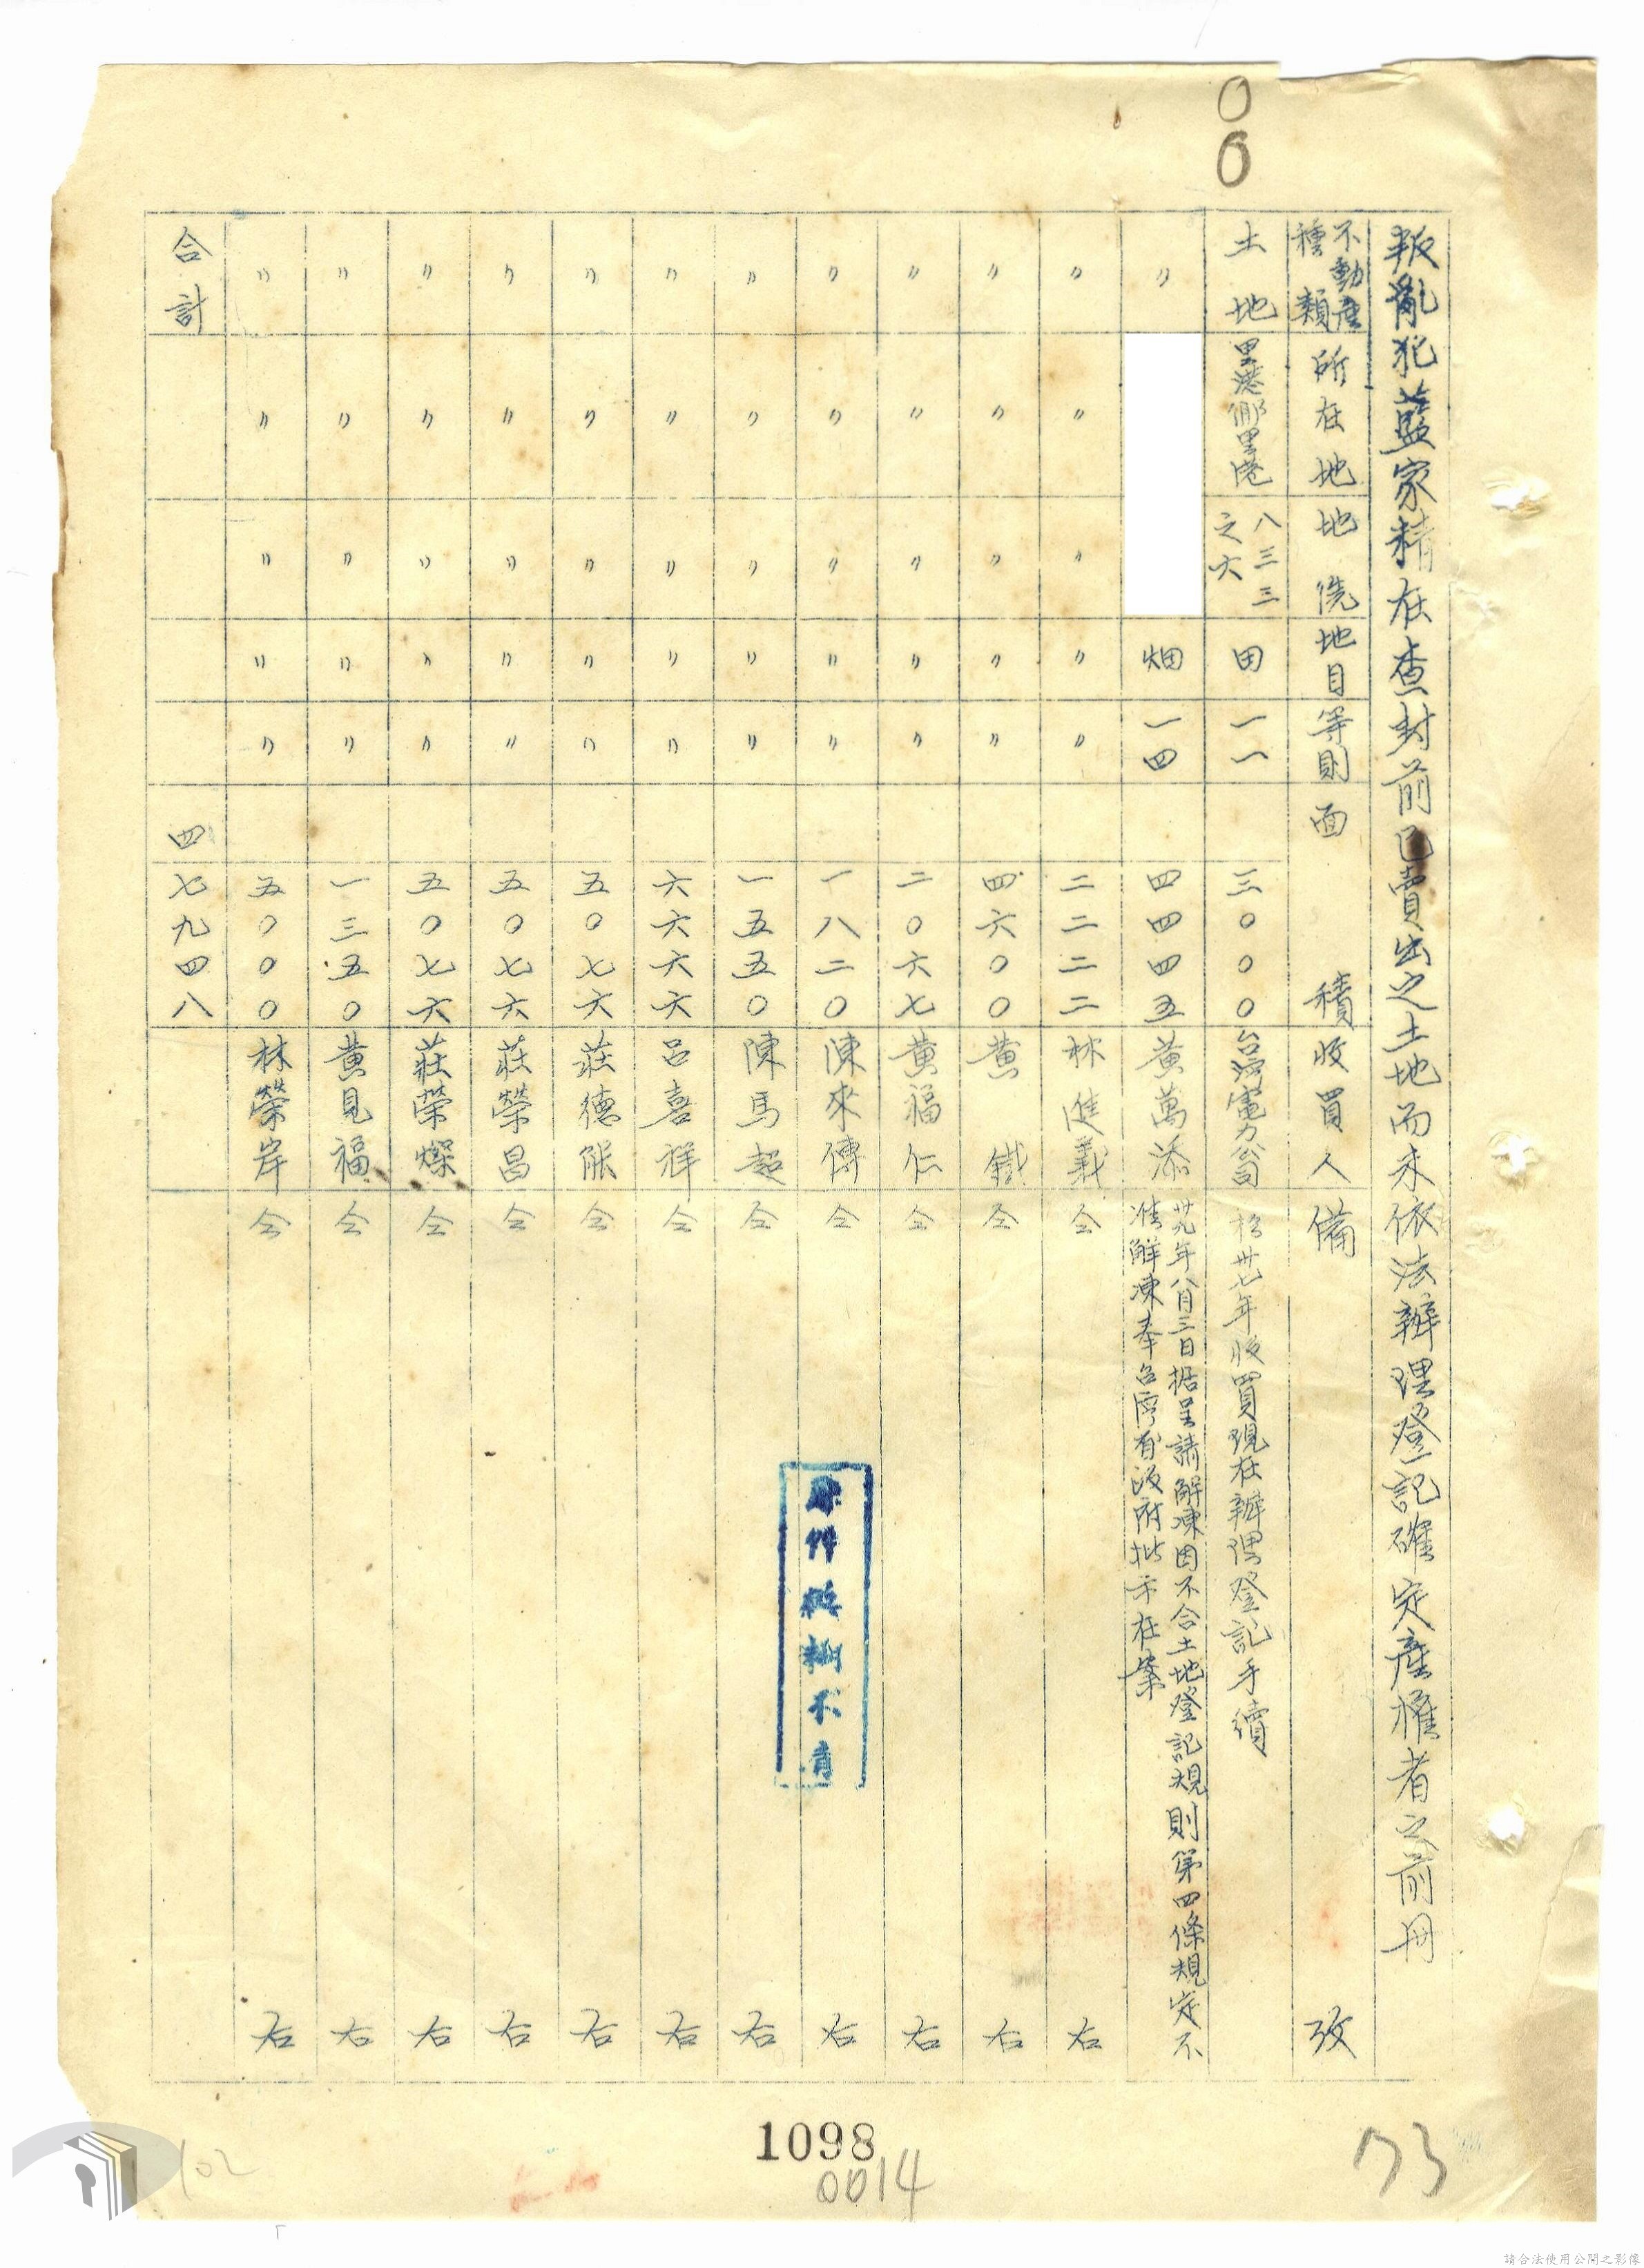 叛亂犯藍家精在查封前已賣出之土地而未依法辦理登記確定產權者之前冊
不動產種類 所在地 地 地目 等則 面積 收買人 備攷
土地 里港鄉里港 八三三之六 田 一一 三〇〇〇 台灣電力公司 於卅七年收買現在辦理登記手續
〃 畑 一四 四四四五 黃萬添 卅九年八月三日据呈請解凍因不合土地登記規則第四條規定不
准解凍奉台灣省政府批示在案
〃 〃 〃 〃 〃 二二二二 林進義 仝右
〃 〃 〃 〃 〃 四六〇〇 黃鐵 仝右
〃 〃 〃 〃 〃 二〇六七 黃福仁 仝右
〃 〃 〃 〃 〃 一八二〇 陳來傳 仝右
〃 〃 〃 〃 〃 一五五〇 陳馬超 仝右
〃 〃 〃 〃 〃 六六六六 呂喜祥 仝右
〃 〃 〃 〃 〃 五〇七六 莊德 仝右
〃 〃 〃 〃 〃 五〇七六 莊榮昌 仝右
〃 〃 〃 〃 〃 五〇七六 莊榮燦 仝右
〃 〃 〃 〃 〃 一三五〇 黃見福 仝右
〃 〃 〃 〃 〃 五〇〇〇 林榮岸 仝右
合計 四七九四八
原件模糊不清
00
1098
0014
73
102
請合法使用公開之影像